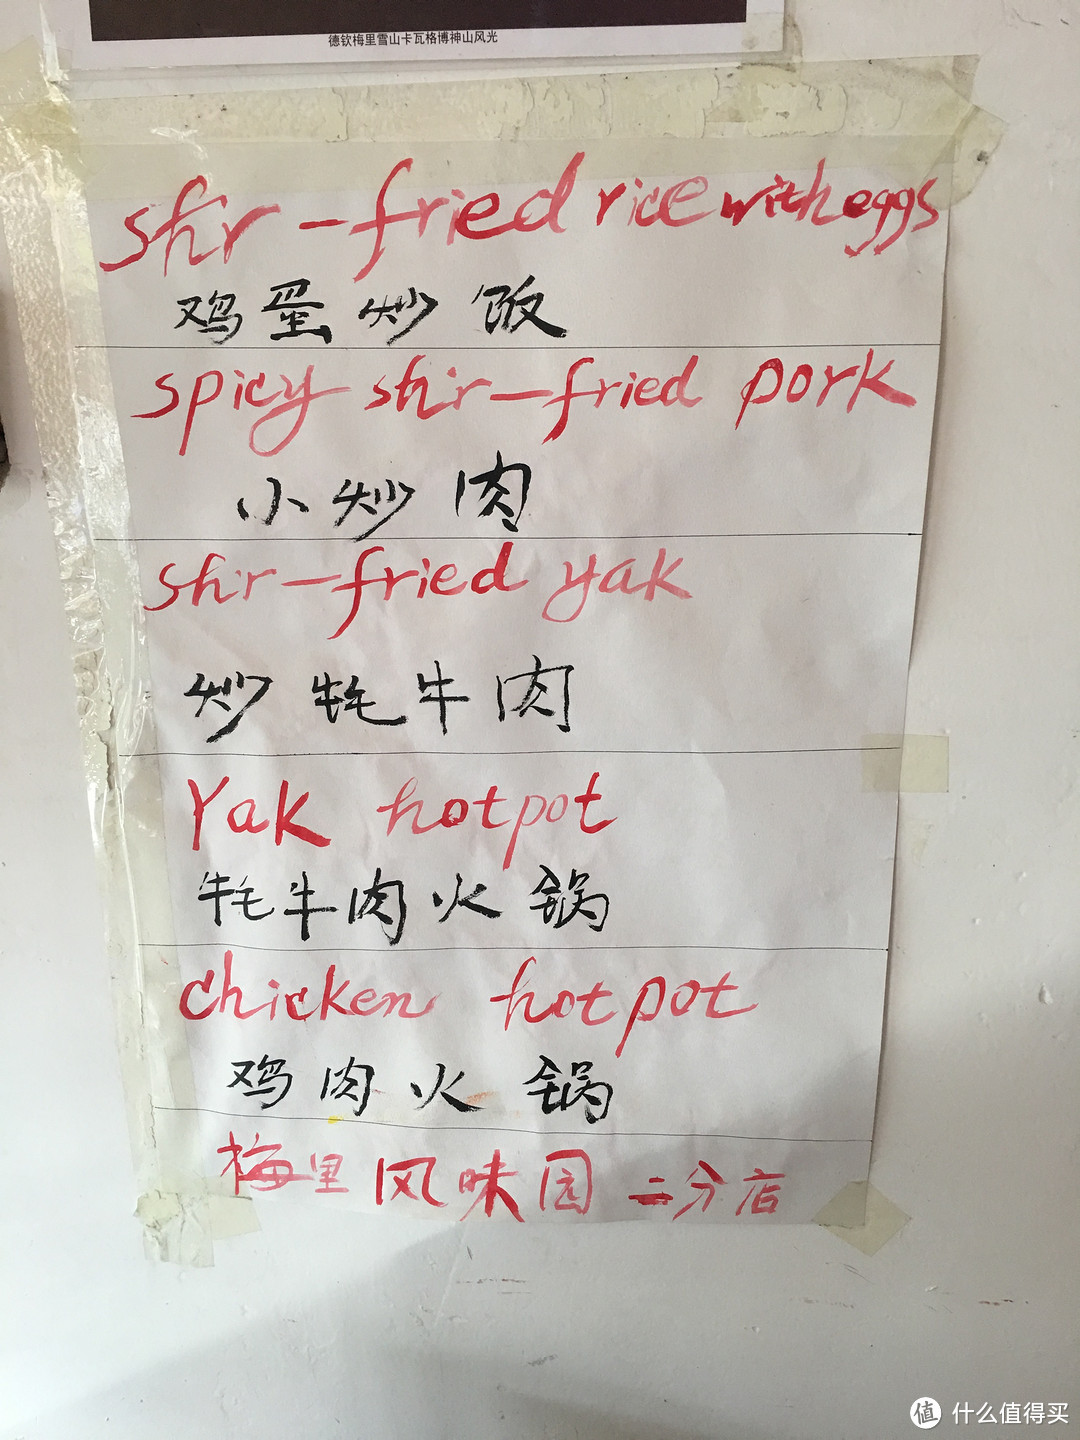 德钦梅里雪山卡瓦格博神山风光
stir-fried rice with eggs
鸡蛋炒饭
spicy stir-fried pork
小炒肉
stir-fried yak
炒牦牛肉
Yak hotpot
牦牛肉火锅
chicken hotpot
鸡肉火锅
梅里风味园 二分店
值 什么值得买